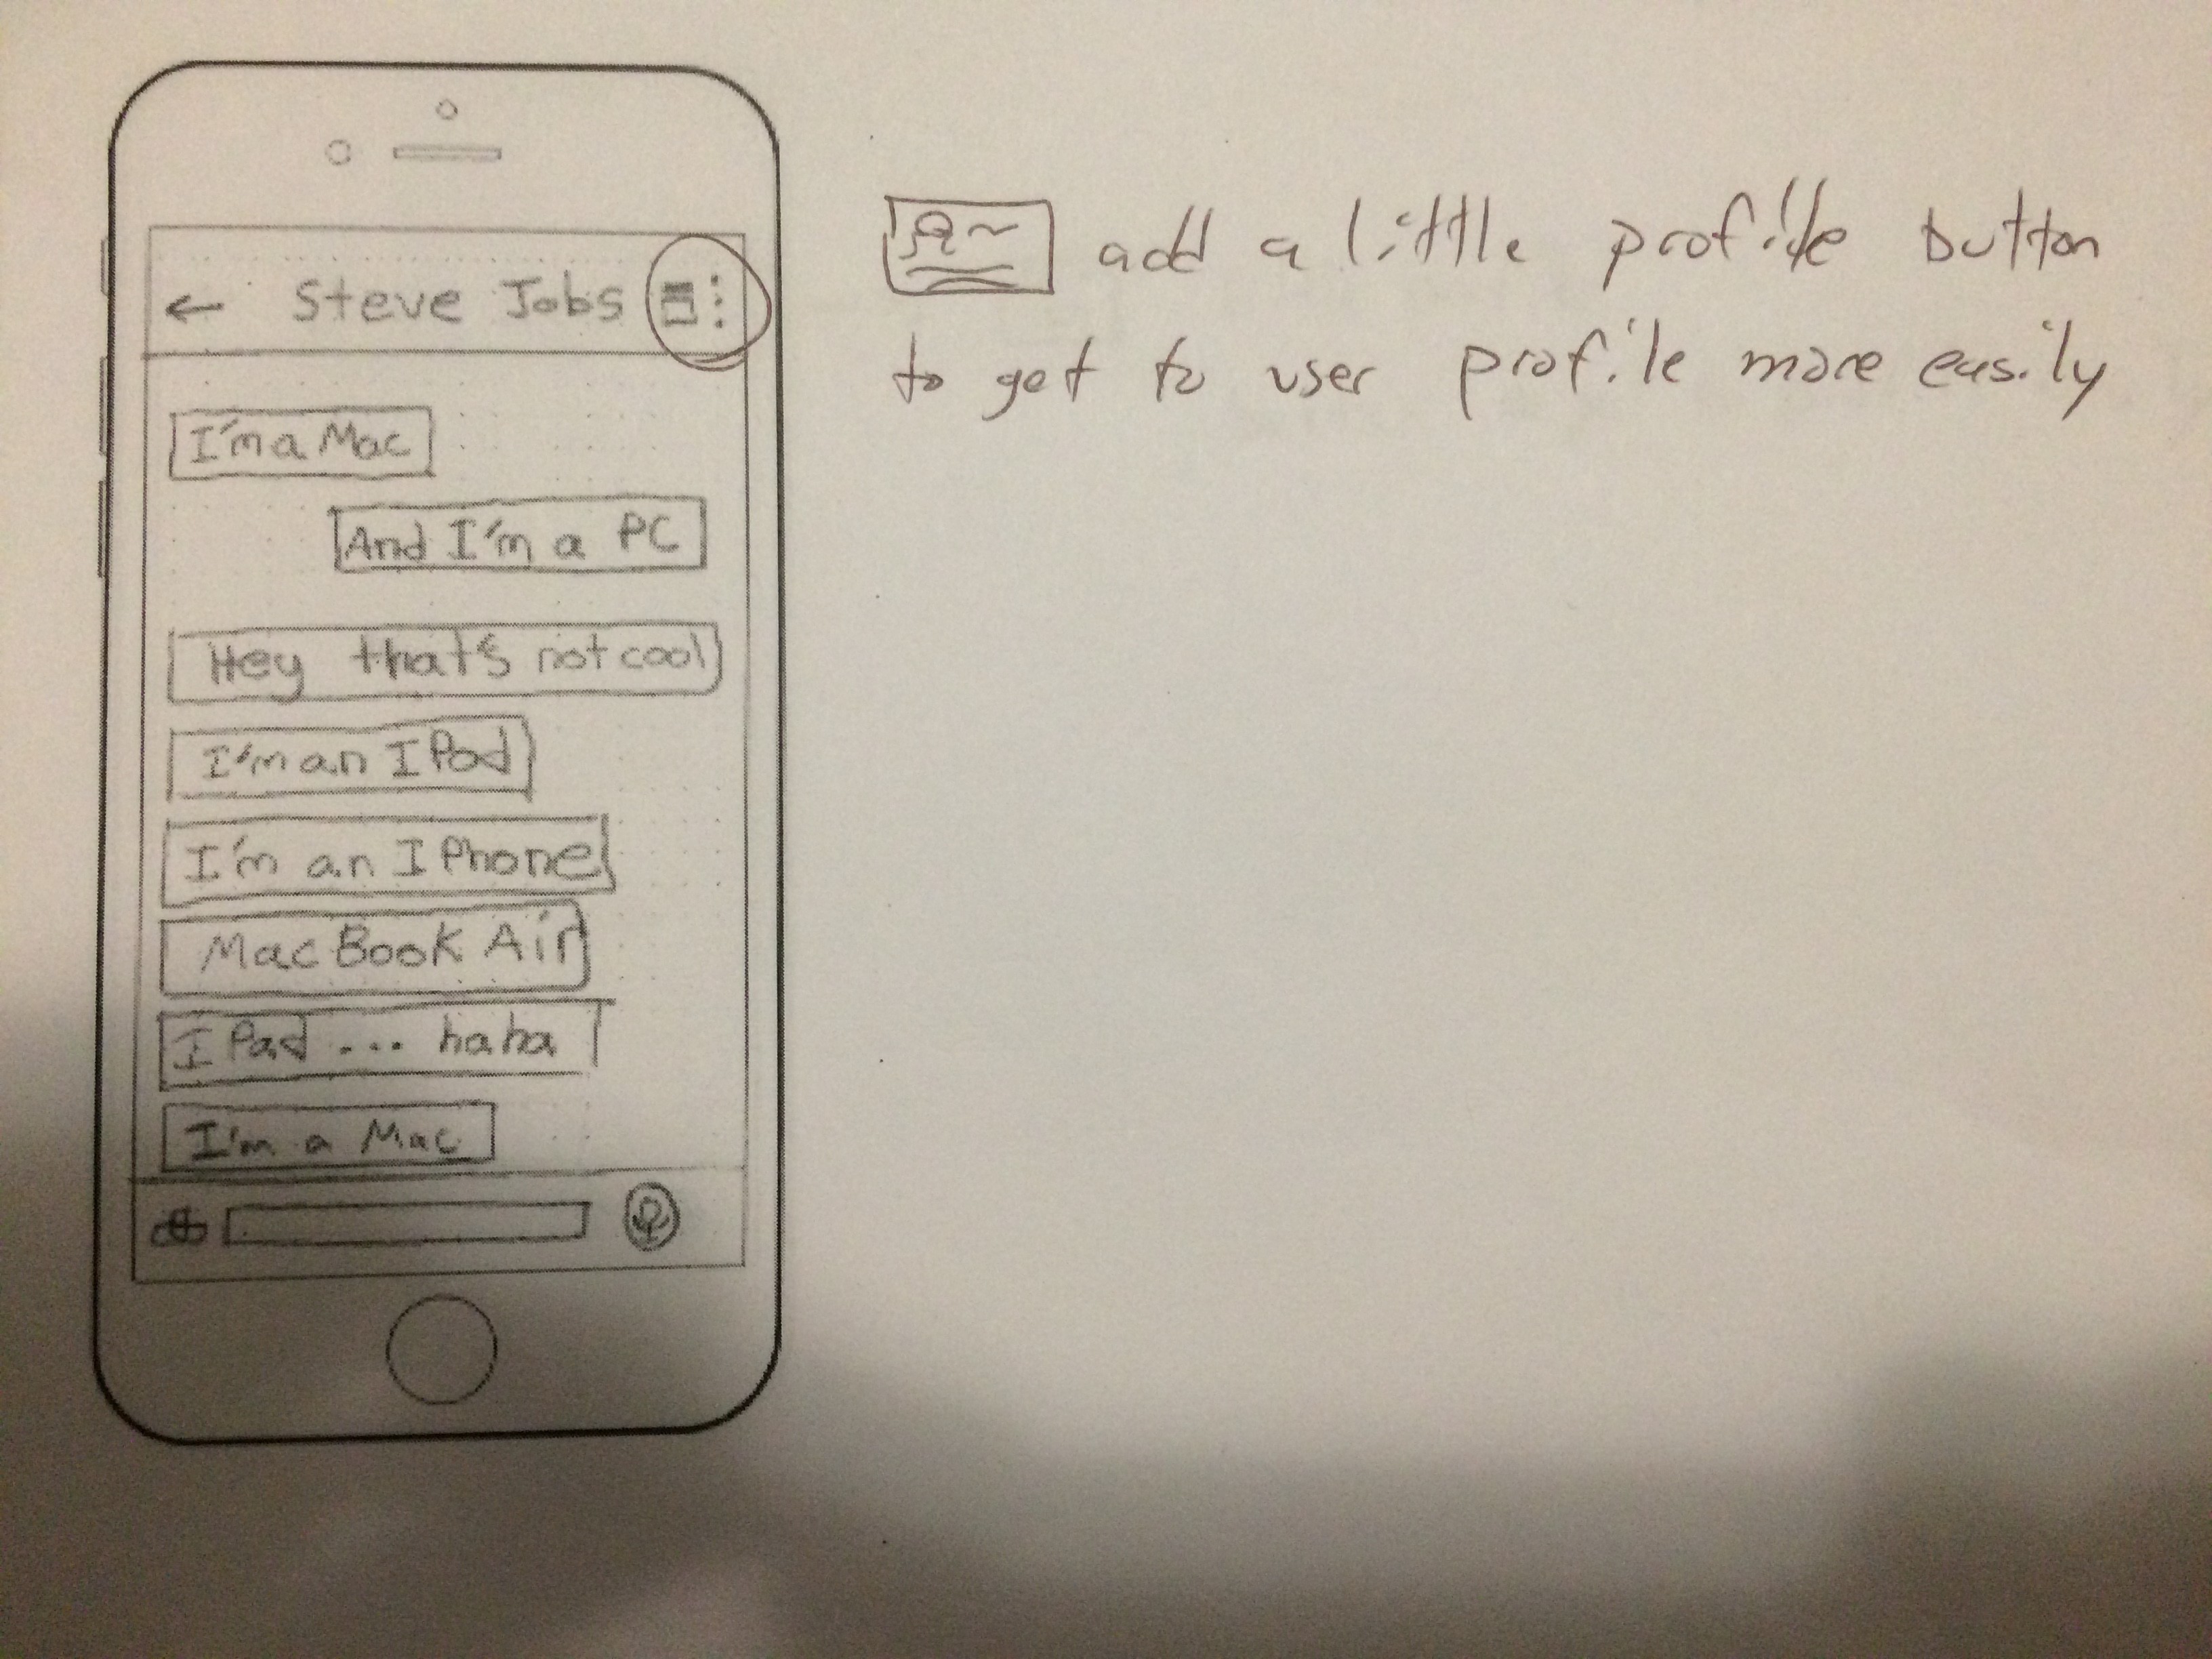 Steve Jobs
I'm a Mac
And I'm a PC
Hey that's not cool
I'm an I Pod
I'm an I Phone
MacBook Air
I Pad ... haha
I'm a Mac
add a little profile button
to get to user profile more easily